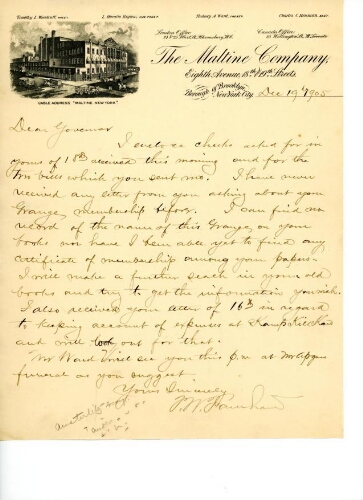 Timothy L. Woodruff, PREST.
Sidney A. Ward, TREAS.
London Office
Canada Office
The Maltine Company,
Eighth Avenue, 18th & 19th Streets,
Borough of Brooklyn,
New York City.
CABLE ADDRESS "MALTINE, NEW YORK"
Dec 19 1905
Dear Governor
I enclose checks asked for in
yours of 18th received this morning and for the
ten bills which you sent me. I have never
received any letter from you asking about your
Grange membership before. I can find no
record of the name of this Grange, on your
books nor have I been able yet to find any
certificate of membership among your papers.
I will make a further search in your old
books and try to get the information you wish.
I also received your letter of 16th in regard
to keeping account of expenses at Kamp Kill Kare
and will look out for that.
Mr Ward will see you this p.m. at
funeral as you suggest.
Yours Sincerely